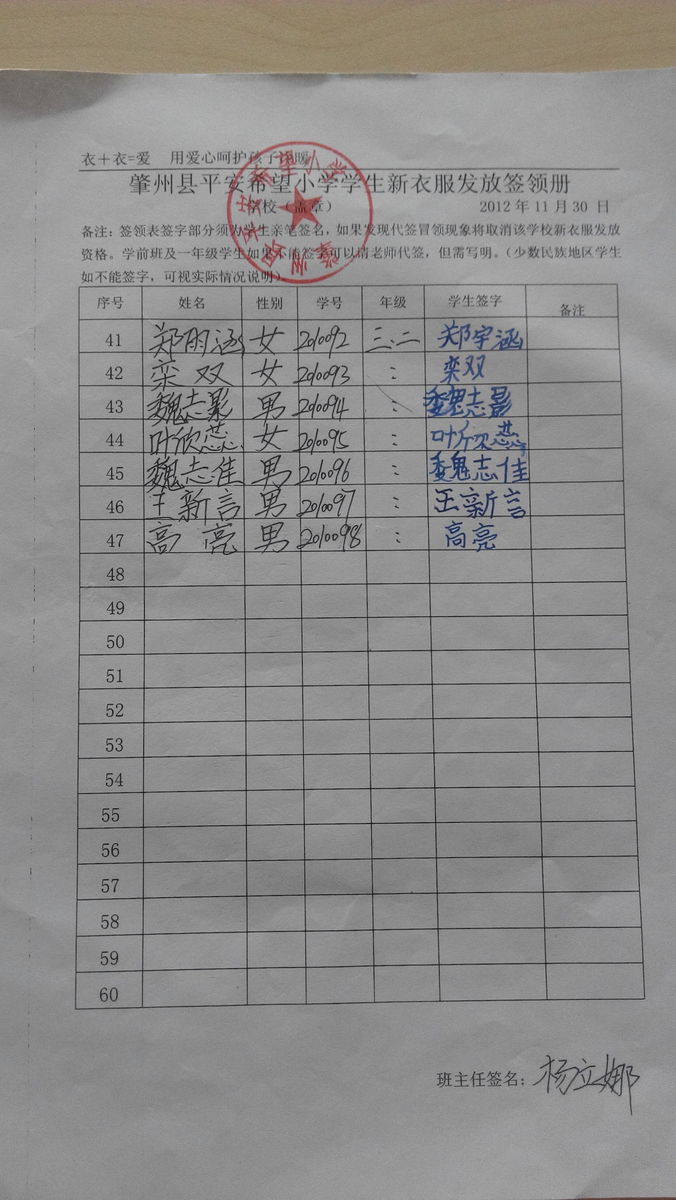 衣＋衣=爱 用爱心呵护孩子冷暖
肇州县平安希望小学学生新衣服发放签领册
学校（盖章） 2012 年 11 月 30 日
备注：签领表签字部分须为学生亲笔签名，如果发现代签冒领现象将取消该学校新衣服发放
资格。学前班及一年级学生如果不能签字可以请老师代签，但需写明。（少数民族地区学生
如不能签字，可视实际情况说明）
序号 姓名 性别 学号 年级 学生签字 备注
41 郑雨涵 女 2010092 三.二 郑宇涵
42 栾双 女 2010093 : 栾双
43 魏志影 男 2010094 : 魏志影
44 叶欣蕊 女 2010095 : 叶欣蕊
45 魏志佳 男 2010096 : 魏志佳
46 王新言 男 2010097 : 王新言
47 高亮 男 2010098 : 高亮
48
49
50
51
52
53
54
55
56
57
58
59
60
班主任签名：杨立娜